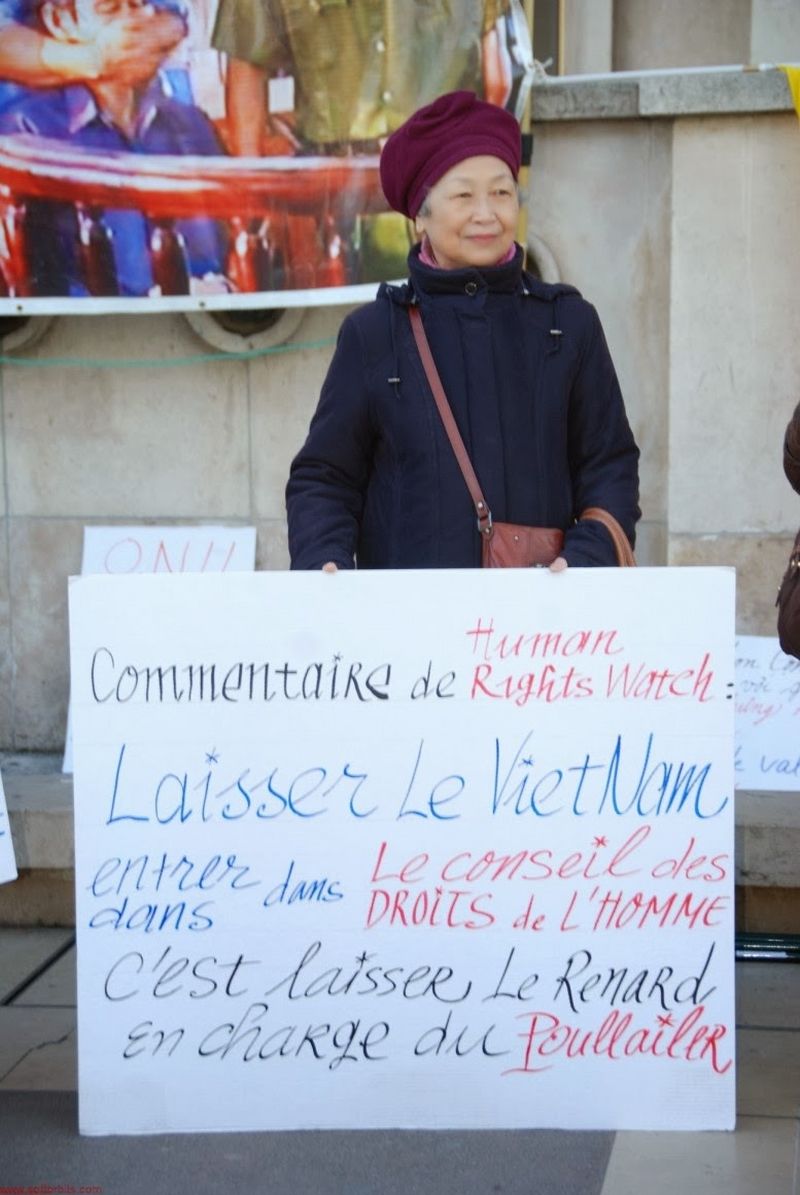 ONU
Commentaire de Human Rights Watch :
Laisser Le VietNam
entrer dans Le conseil des
dans DROITS de L'HOMME
C'est laisser Le Renard
en charge du Poullailer
www.softorbits.com